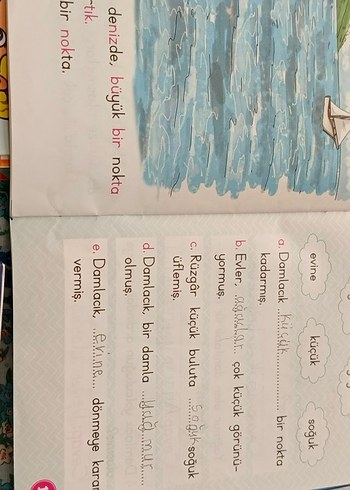 denizde, büyük bir nokta
bir nokta.
evine küçük soğuk
a. Damlacık küçük bir nokta
kadarmış.
b. Evler, ağaçlar çok küçük görünü-
yormuş.
c. Rüzgâr küçük buluta soğuk soğuk
üflemiş.
d. Damlacık, bir damla yağmur
olmuş.
e. Damlacık, evine dönmeye karar
vermiş.